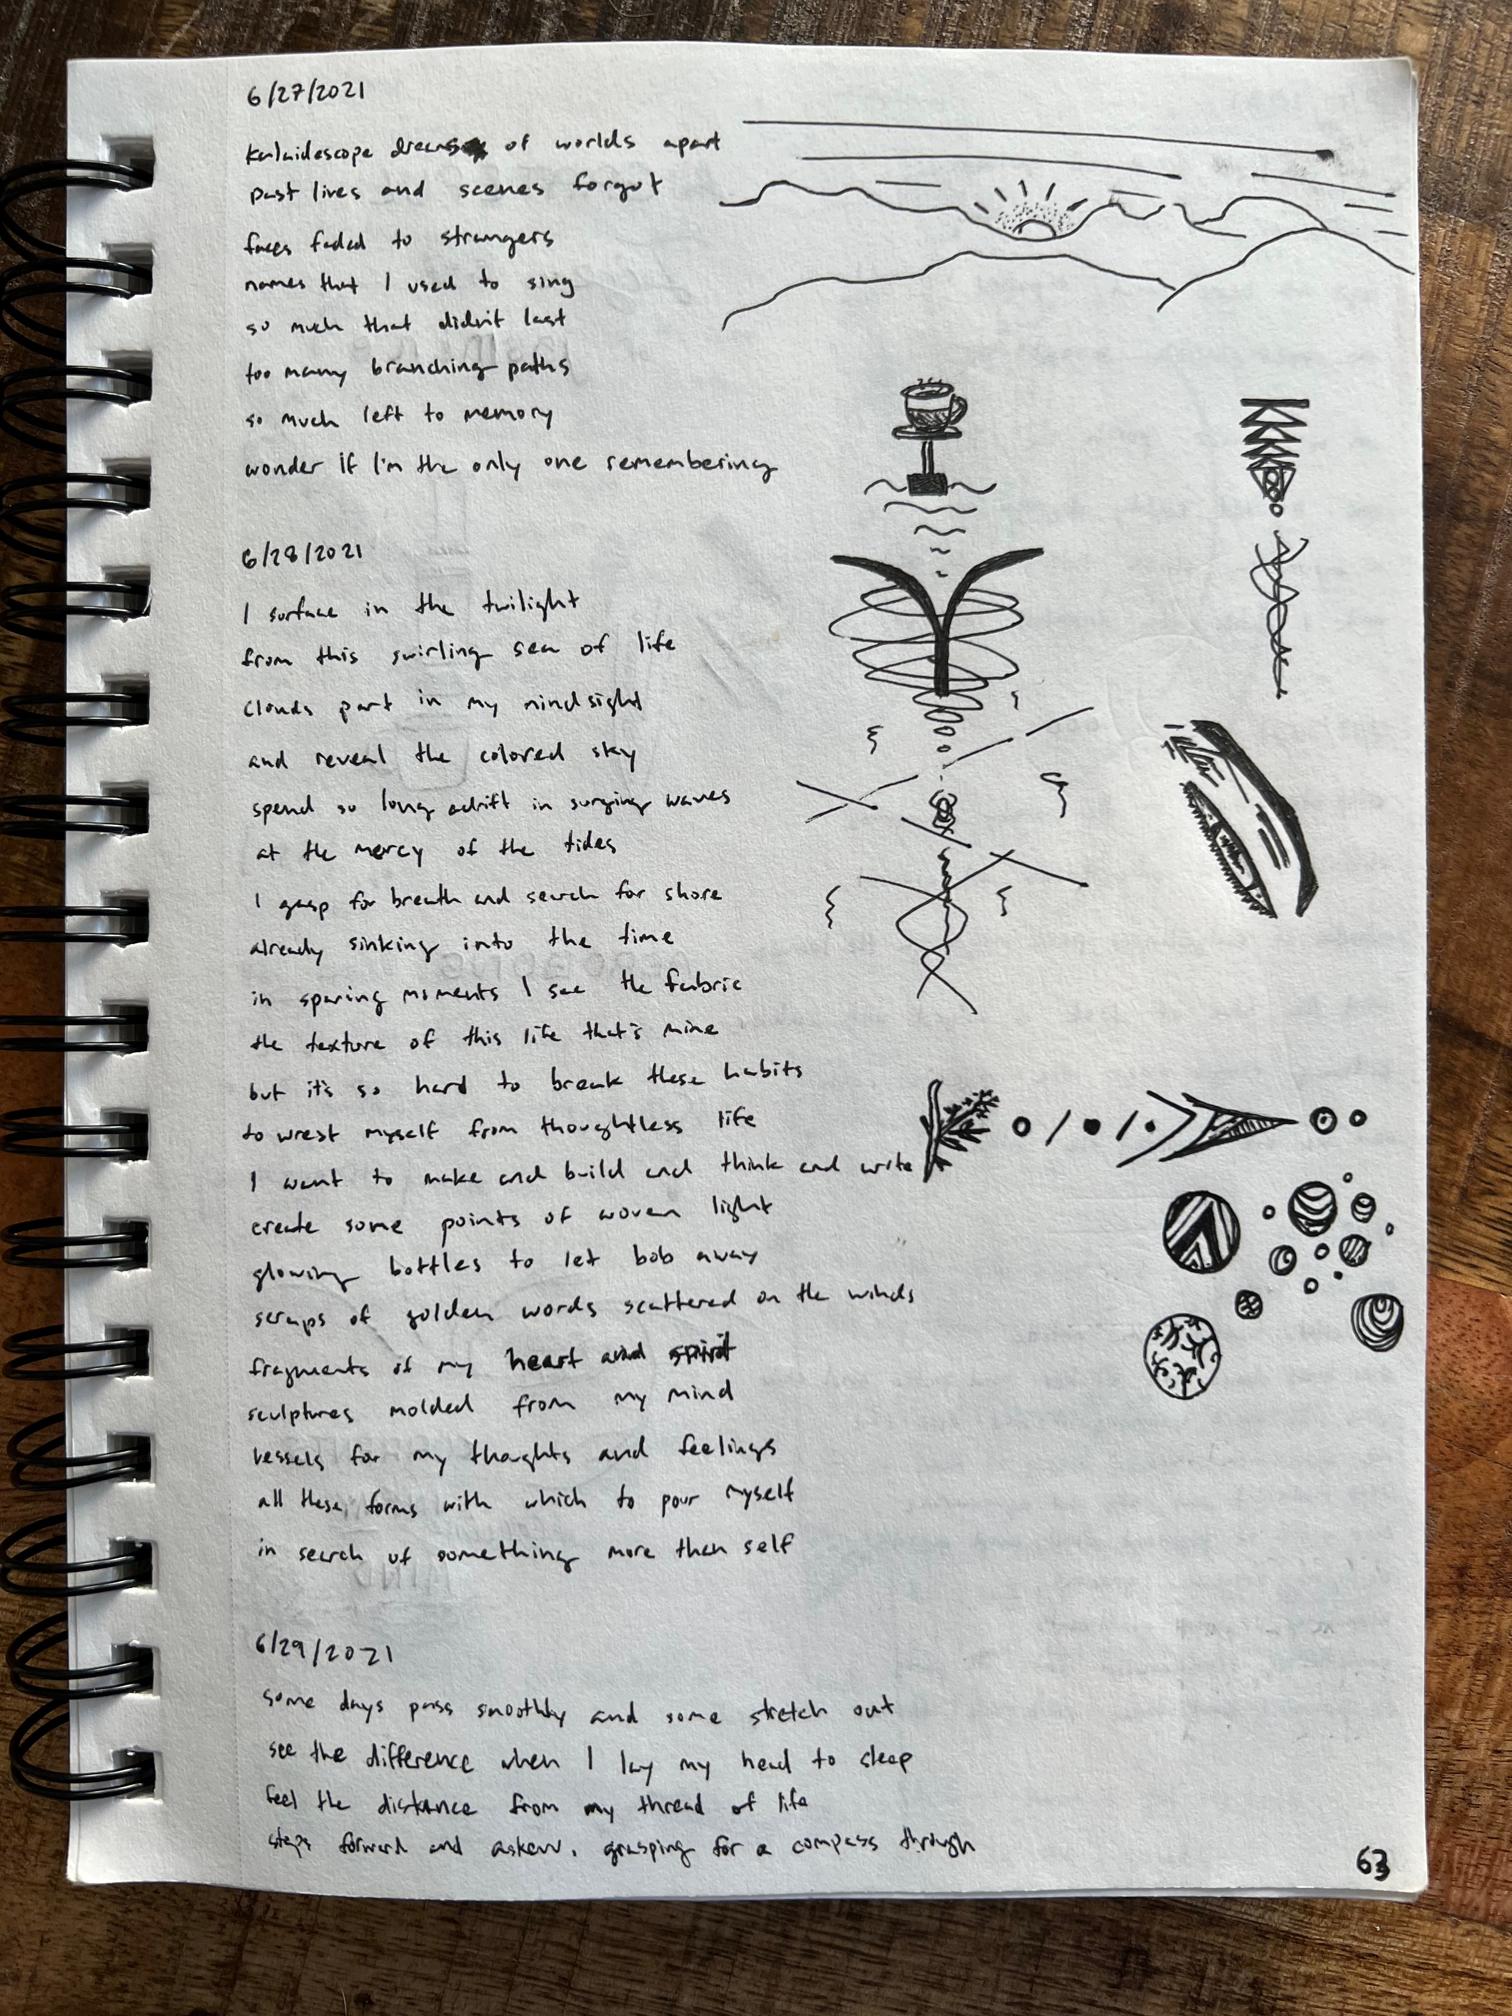 6/27/2021
kaleidescope dreams of worlds apart
past lives and scenes forgot
faces faded to strangers
names that I used to sing
so much that didn't last
too many branching paths
so much left to memory
wonder if I'm the only one remembering
6/28/2021
I surface in the twilight
from this swirling sea of life
clouds part in my mindsight
and reveal the colored sky
spend so long adrift in surging waves
at the mercy of the tides
I gasp for breath and search for shore
already sinking into the time
in sparing moments I see the fabric
the texture of this life that's mine
but it's so hard to break these habits
to wrest myself from thoughtless life
I want to make and build and think and write
create some points of woven light
glowing bottles to let bob away
scraps of golden words scattered on the winds
fragments of my heart and spirit
sculptures molded from my mind
vessels for my thoughts and feelings
all these forms with which to pour myself
in search of something more than self
6/29/2021
some days pass smoothly and some stretch out
see the difference when I lay my head to sleep
feel the distance from my thread of life
steps forward and askew, grasping for a compass through
63